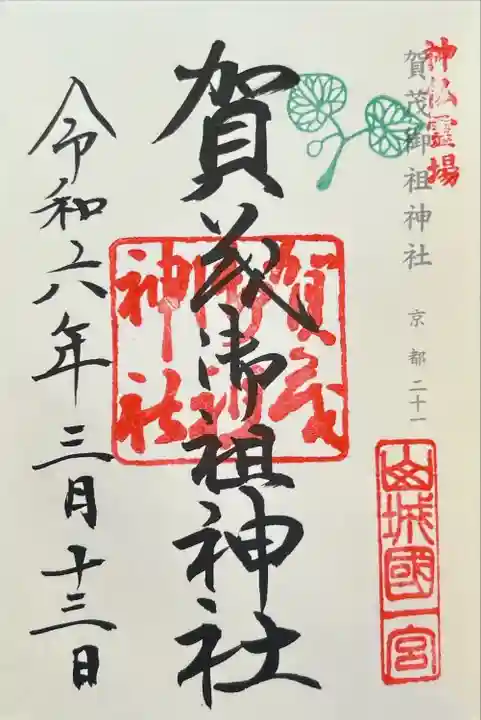 神仏霊場
賀茂御祖神社 京都二十一
山城國一宮
賀茂御祖神社
賀茂御祖神社
令和六年三月十三日